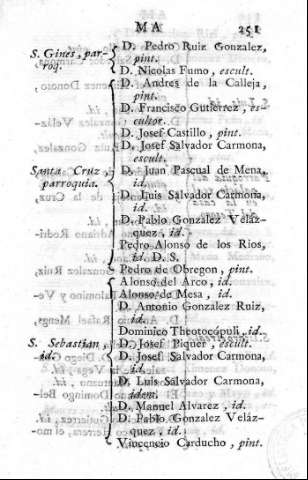 MA 251
S. Gines, par-
roq.
D. Pedro Ruiz Gonzalez,
pint.
D. Nicolas Fumo, escult.
D. Andres de la Calleja,
pint.
D. Francisco Gutierrez, es-
cultor.
D. Josef Castillo, pint.
D. Josef Salvador Carmona,
escult.
Santa Cruz,
parroquia.
D. Juan Pascual de Mena,
id.
D. Luis Salvador Carmona,
id.
D. Pablo Gonzalez Veláz-
quez, id.
Pedro Alonso de los Rios,
id. D. S.
Pedro de Obregon, pint.
S. Sebastian,
id.
Alonso del Arco, id.
Alonso de Mesa, id.
D. Antonio Gonzalez Ruiz,
id.
Dominico Theotocópuli, id.
D. Josef Piquer, escult.
D. Josef Salvador Carmona,
id.
D. Luis Salvador Carmona,
idem.
D. Manuel Alvarez, id.
D. Pablo Gonzalez Veláz-
quez, id.
Vincencio Carducho, pint.